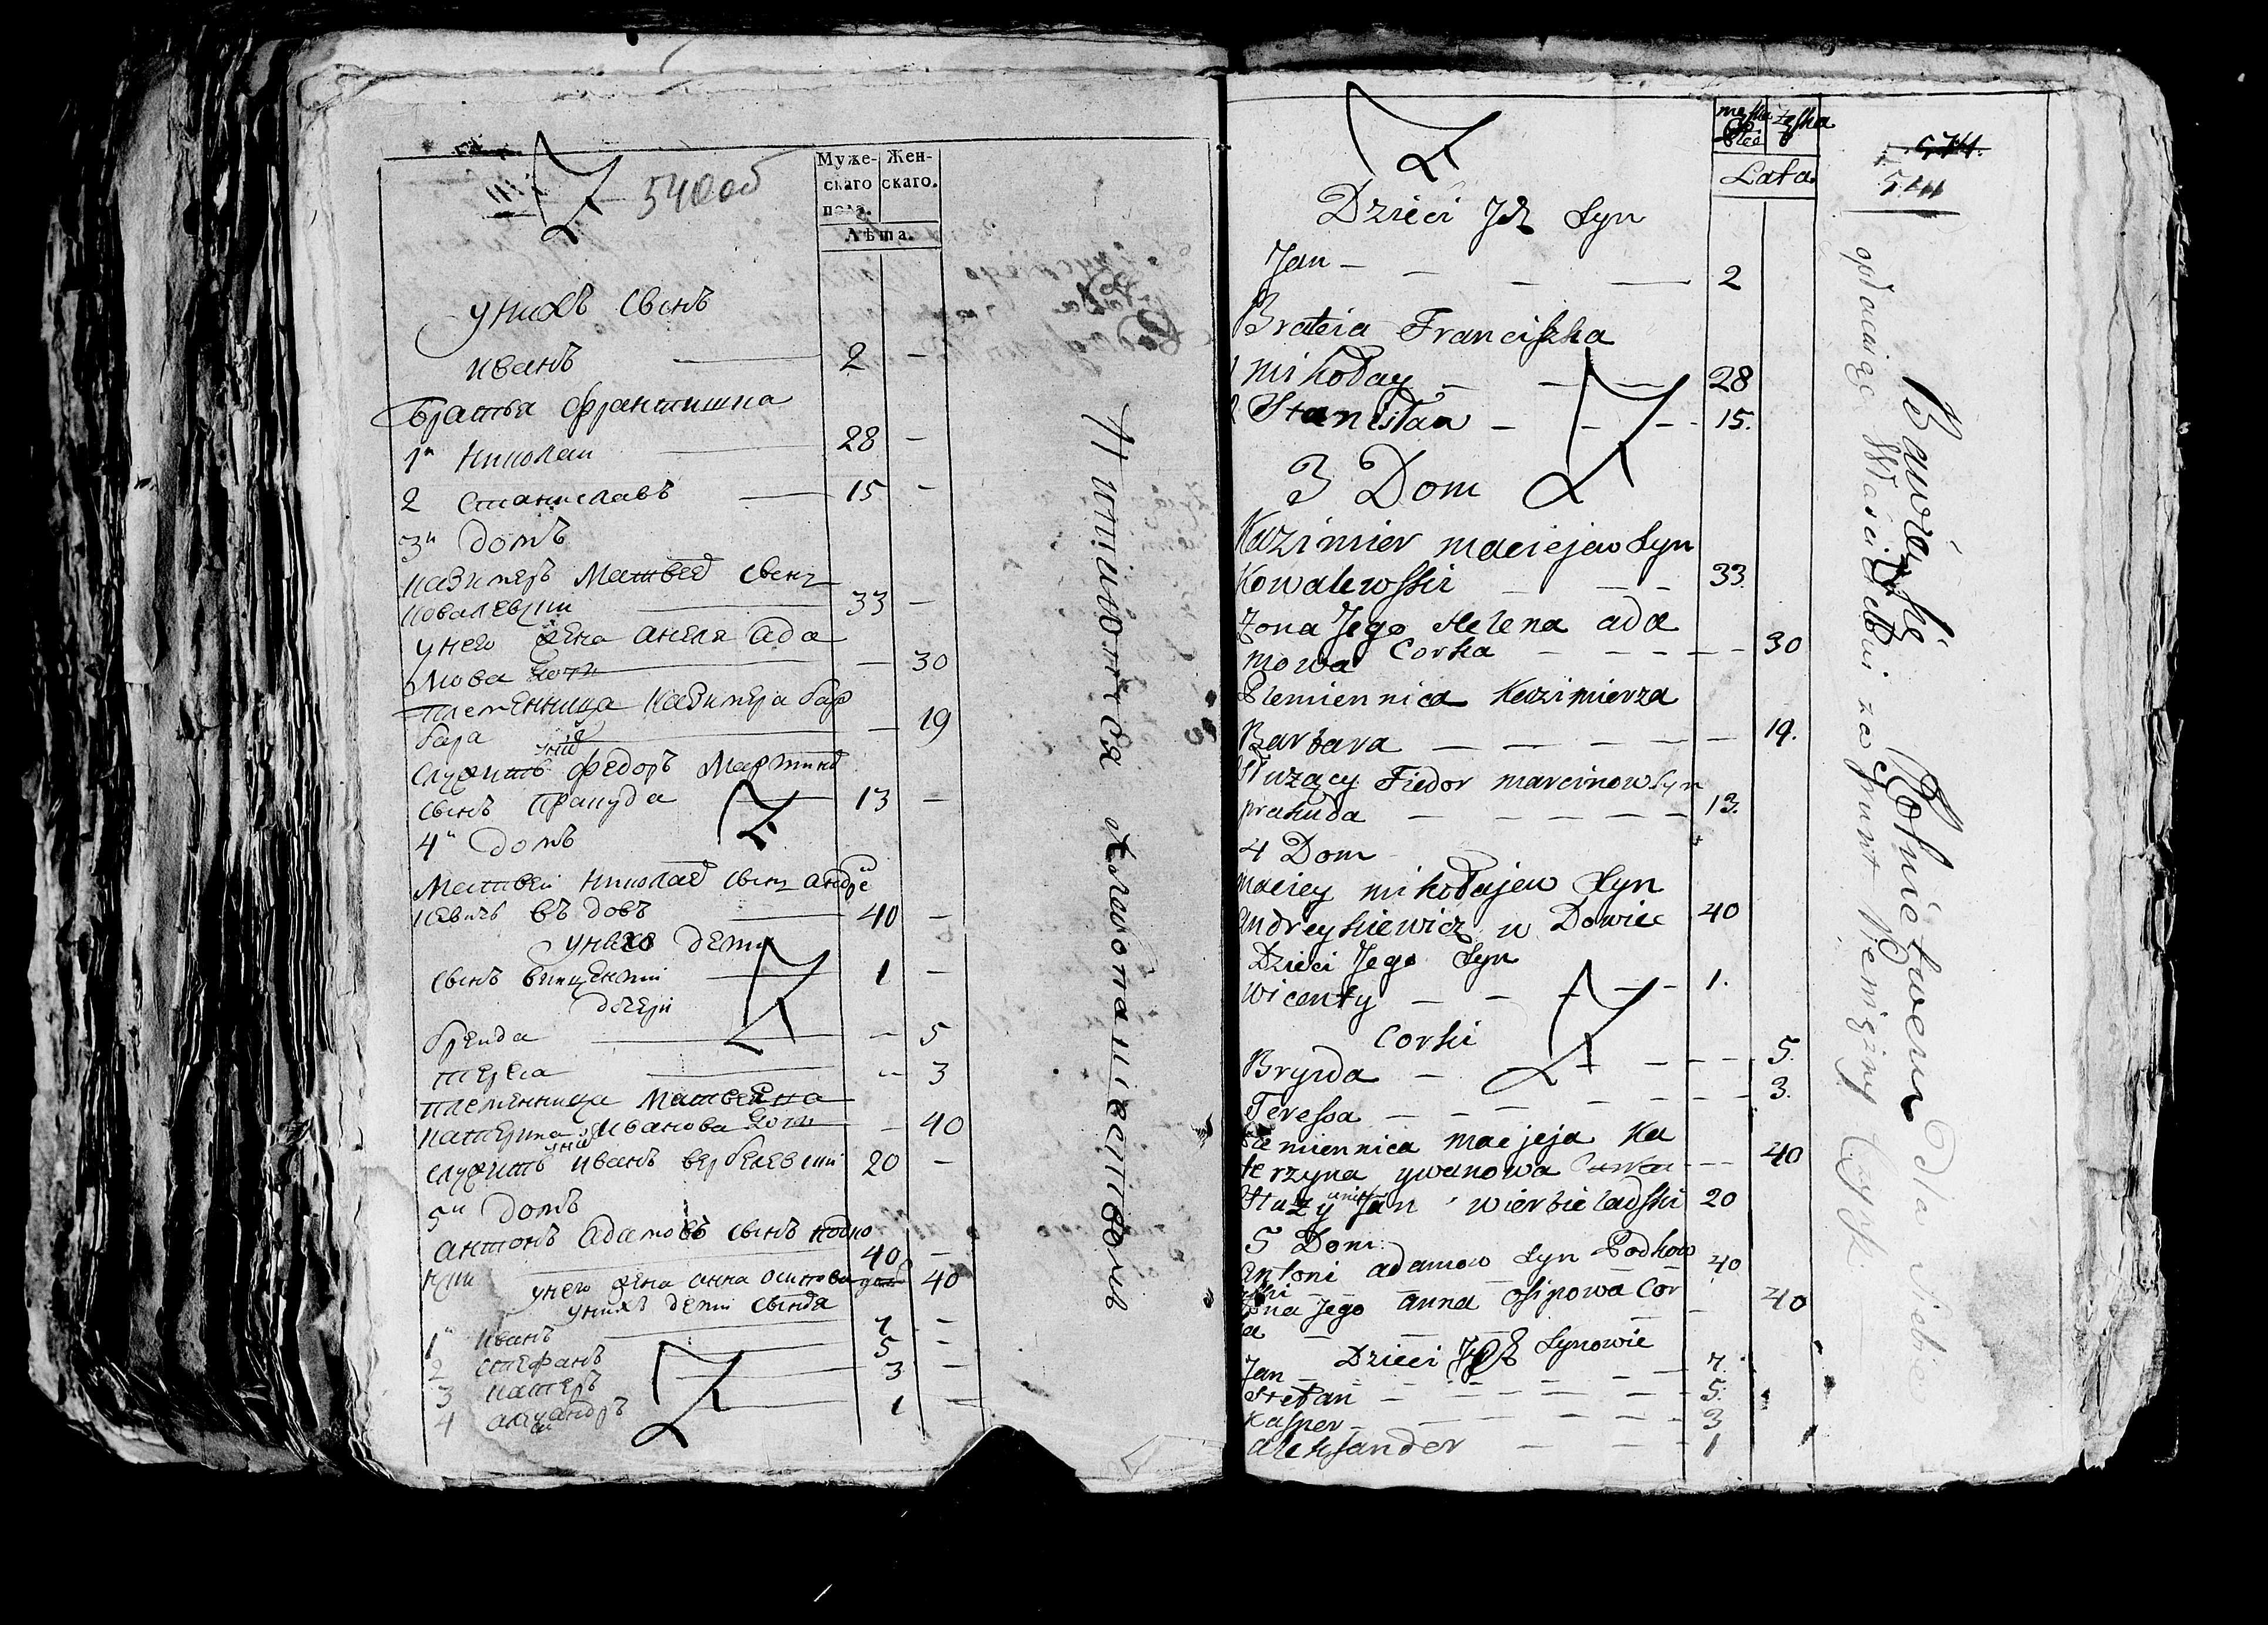 540об
Муже- Жен-
скаго скаго.
пола.
Лѣта.
унихъ сынъ
иванъ 2 —
Братья Франтишка
1й Николаи 28 —
2 Станиславъ — 15 —
3й домъ
казимеръ Матвеев сынъ
ковалевски 33 —
унего жена анеля ада
мова — 30
племенница казимера бар
бара — 19
служитъ федоръ Мартинов
сынъ Пракуда 13 —
4й домъ
Матвеи николаев сынъ андре
кевичъ въ довъ 40 —
унего дети
сынъ винцентий 1 —
дочери
бренда — 5
тереса — 3
племенница Матвеяна
катерина иванова дочь — 40
служитъ иванъ вербелевски 20 —
5й домъ
антонъ адамовъ сынъ подко
40 —
унего жена анна осипова дочь 40
унихъ дети сыновя
1й иванъ 7 —
2 стефанъ 5 —
3 3 —
4 александръ 1 —
занимаются
męska żeska
Płeć
Lata
Dzieci Ich Syn
Jan — — — — 2
Bratεia Franciszka
1 mikołay — — — 28
2 Stanisław — — — 15.
3 Dom
Kazimier maciejew Syn
Kowalewski — — — 33.
Żona Jego Helena ada
mowa Corka — — — — 30
Plemiennica Kazimierza
Barbara — — — — — 19.
Służący Fiedor marcinow Syn
prakuda — — — — — 13.
4 Dom
maciey mikołajew Syn
andreykiewicz w Dowiec 40
Dzieci Jego Syn
wicenty — — — — 1.
Corki
Brynda — — — — 5.
Teressa — — — — — — 3.
Plemiennica maciεja Ka
terzyna ywanowa Corka — — 40
Służy unich Jan wierbieladski 20
5 Dom
antoni adamow Syn Podkow 40
ski — — — —
Żona Jego anna osipowa Cor — 40
ka — — — —
Dzieci Ich Synowie
Jan — — — — — 7.
Stefan — — — — — 5.
Kasper — — — — — 3
aleksander — — — 1
Bawią się Rolnictwem dla siebie
opłacaiąc Właścicielowi za grunt Pieniężny Czynsz